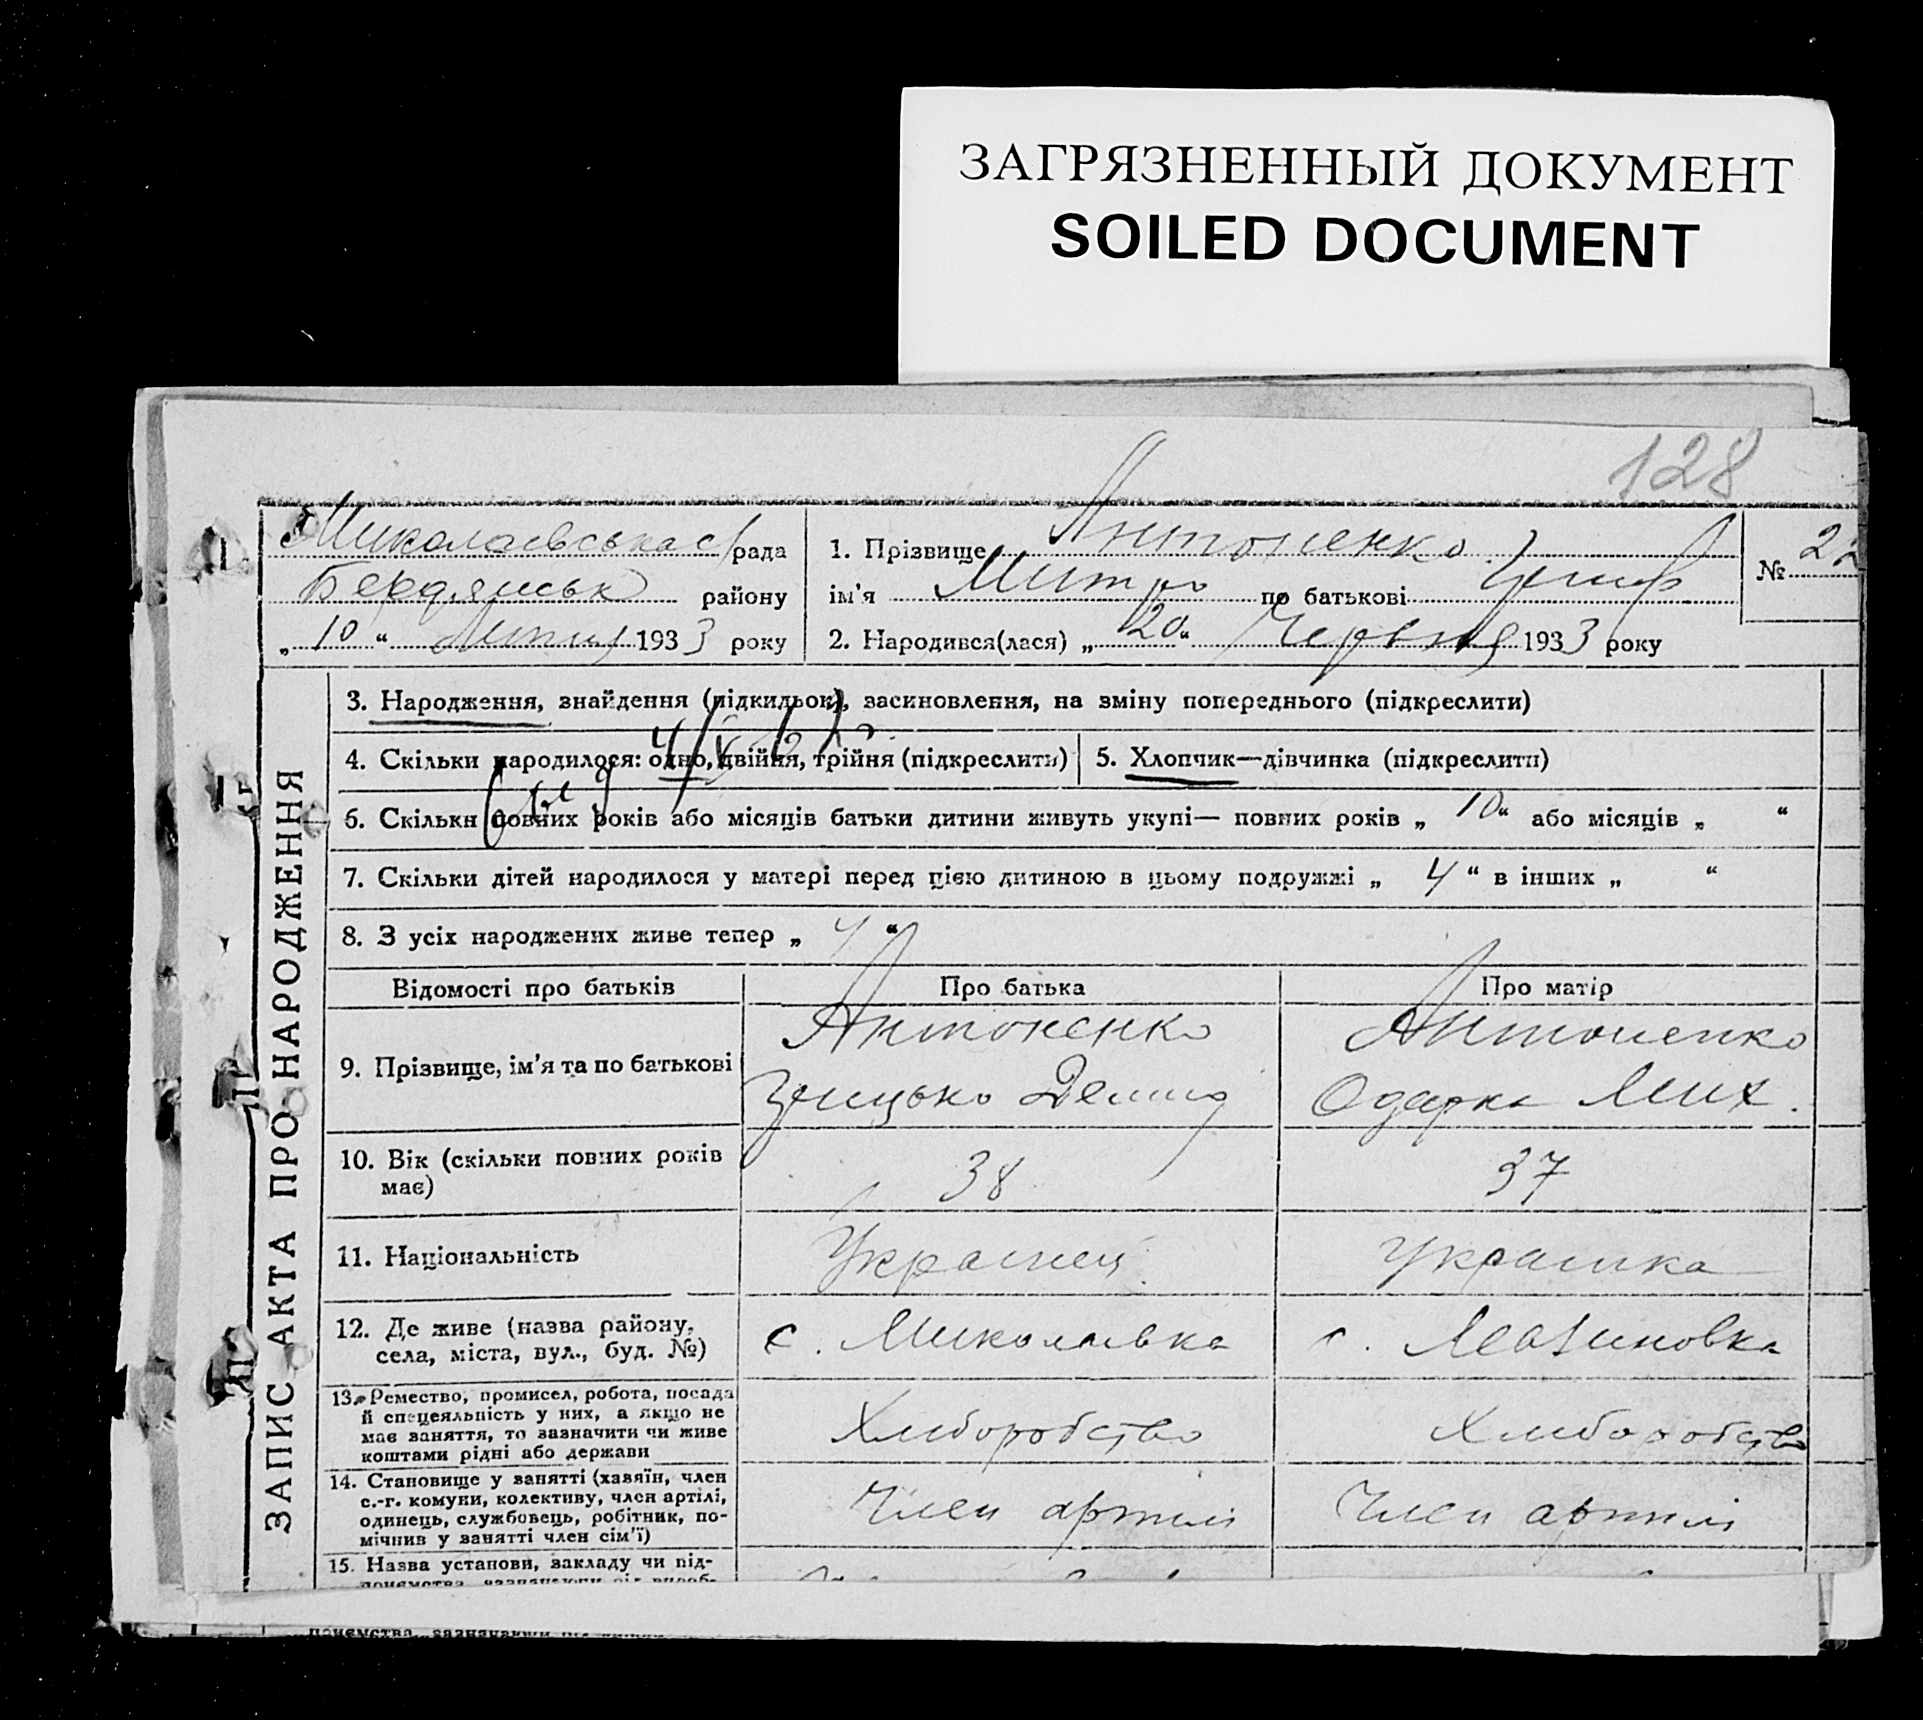 ЗАГРЯЗНЕННЫЙ ДОКУМЕНТ
SOILED DOCUMENT
128
Миколаївська с/рада
Бердянськ району
„ 10 “ Липня 1933 року
1. Прізвище Антоненко
ім'я Митро по батькові Гриц
2. Народився(лася) „ 20 “ Червня 1933 року
№ 22
ЗАПИС АКТА ПРО НАРОДЖЕННЯ
3. Народження, знайдення (підкидьок), засиновлення, на зміну попереднього (підкреслити)
4. Скільки народилося: одно, двійня, трійня (підкреслити)
5. Хлопчик—дівчинка (підкреслити)
6. Скільки повних років або місяців батьки дитини живуть укупі— повних років „ 10 “ або місяців „ “
7. Скільки дітей народилося у матері перед цією дитиною в цьому подружжі „ 4 “ в інших „ “
8. З усіх народжених живе тепер „ 4 “
Відомості про батьків Про батька Про матір
9. Прізвище, ім'я та по батькові
Антоненко
Грицько Демид
Антоненко
Одарка Мих.
10. Вік (скільки повних років
має)
38
37
11. Національність
Українец
Українка
12. Де живе (назва району,
села, міста, вул., буд. №)
с. Миколаївка
с.
13. Ремество, промисел, робота, посада
й спецеяльність у них, а якщо не
має заняття, то зазначити чи живе
коштами рідні або держави
Хліборобство
Хліборобство
14. Становище у занятті (хазяїн, член
с.-г. комуни, колективу, член артілі,
одинець, службовець, робітник, по-
мічник у занятті член сім'ї)
Член артилі
Член артилі
15. Назва установи, закладу чи під-
приємства, зазначаючи